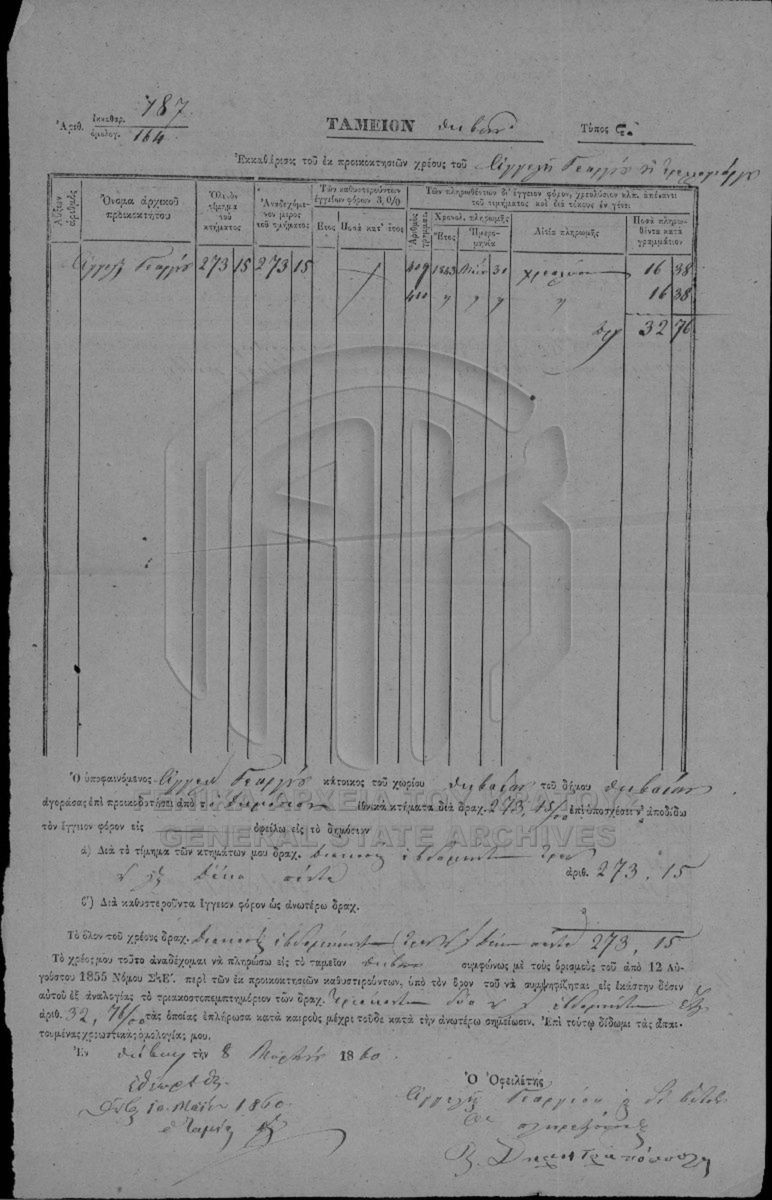 Ἀριθ. ἐκκαθαρ. 187
ὁμολογ. 164
ΤΑΜΕΙΟΝ Θηβῶν Τύπος
Ἐκκαθάρισις τοῦ ἐκ προικοκτησιῶν χρέους τοῦ Ἀγγελῆ Γεωργίου
Αὔξων ἀριθμός
Ὄνομα ἀρχικοῦ προικοκτήτου
Ὁλικὸν τίμημα τοῦ κτήματος
Ἀναδεχόμενον μέρος τοῦ τιμήματος
Τῶν καθυστερούντων ἐγγείων φόρων 3, 0/0
Ἔτος
Ποσὰ κατ' ἔτος
Τῶν πληρωθέντων δι' ἔγγειον φόρον, χρεολύσιον κλπ. ἀπέναντι τοῦ τιμήματος καὶ διὰ τόκους ἐν γένει
Ἀριθμὸς γραμματ.
Χρονολ. πληρωμῆς
Ἔτος
Ἡμερομηνία
Αἰτία πληρωμῆς
Ποσὰ πληρωθέντα κατὰ γραμμάτιον
Ἀγγελῆ Γεωργίου 273 15 273 15 409 1853 30 χρεολύσιον 16 38
410 " " " " 16 38
δρχ 32 76
Ὁ ὑποφαινόμενος Ἀγγελῆ Γεωργίου κάτοικος τοῦ χωρίου Θηβαίων τοῦ δήμου Θηβαίων
ἀγοράσας ἐπὶ προικοδοτήσει ἀπὸ τὸ Δημόσιον ἐθνικὰ κτήματα διὰ δραχ. 273, 15/00 ἐπὶ ὑποσχέσει ν' ἀποδίδω
τὸν ἔγγειον φόρον εἰς ὀφείλω εἰς τὸ δημόσιον
ΓΕΝΙΚΑ ΑΡΧΕΙΑ ΤΟΥ ΚΡΑΤΟΥΣ
GENERAL STATE ARCHIVES
α) Διὰ τὸ τίμημα τῶν κτημάτων μου δραχ. διακοσίας ἑβδομήκοντα τρεῖς
δέκα πέντε ἀριθ. 273, 15
β') Διὰ καθυστεροῦντα ἔγγειον φόρον ὡς ἀνωτέρω δραχ.
Τὸ ὅλον τοῦ χρέους δραχ. διακοσίας ἑβδομήκοντα τρεῖς δέκα πέντε 273, 15
Τὸ χρέος μου τοῦτο ἀναδέχομαι νὰ πληρώσω εἰς τὸ ταμεῖον Θηβῶν συμφώνως μὲ τοὺς ὁρισμοὺς τοῦ ἀπὸ 12 Αὐ-
γούστου 1855 Νόμου ΣΛΕ'. περὶ τῶν ἐκ προικοκτησιῶν καθυστερούντων, ὑπὸ τὸν ὅρον τοῦ νὰ συμψηφίζηται εἰς ἑκάστην δόσιν
αὐτοῦ ἐξ ἀναλογίας τὸ τριακοστοπεμπτημόριον τῶν δραχ. τριάκοντα δύο ἑβδομήκοντα ἕξ
ἀριθ. 32, 76/00 τὰς ὁποίας ἐπλήρωσα κατὰ καιροὺς μέχρι τοῦδε κατὰ τὴν ἀνωτέρω σημείωσιν. Ἐπὶ τούτῳ δίδωμι τὰς ἀπαι-
τουμένας χρεωστικὰς ὁμολογίας μου.
Ἐν Θήβαις τὴν 8 Μαρτίου 1860
Ἐθεωρήθη
10 Μαΐου 1860
ὁ Ταμίας
Ὁ Ὀφειλέτης
Ἀγγελῆς Γεωργίου